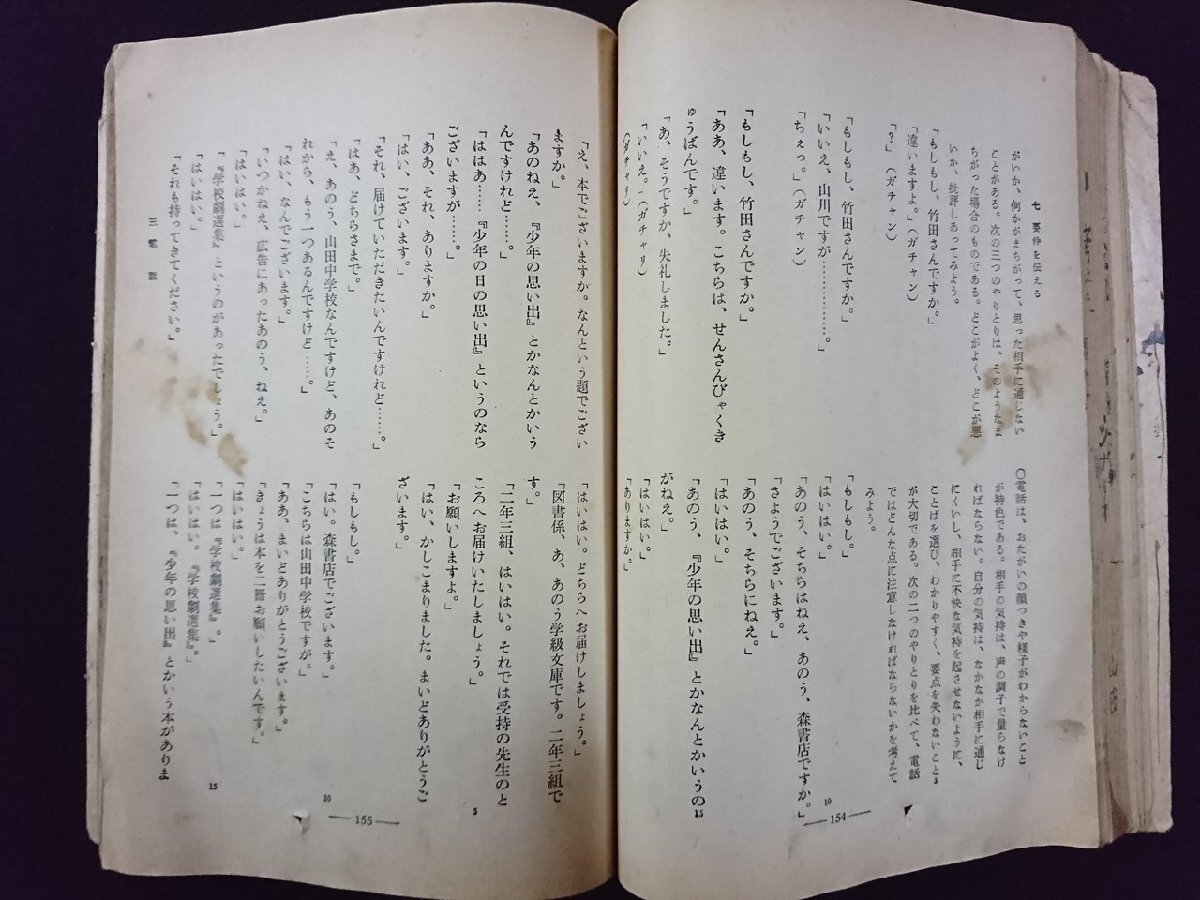 七 要件を伝える
がいか、何かがまちがって、思った相手に通じない
ことがある。次の三つのやりとりは、そのようたま
ちがった場合のものである。どこがよく、どこが悪
いか、批評しあってみよう。
「もしもし、竹田さんですか。」
「違いますよ。」(ガチャン)
「？」(ガチャン)
「もしもし、竹田さんですか。」
「いいえ、山川ですが…………………。」
「ちぇっ。」(ガチャン)
「もしもし、竹田さんですか。」
「ああ、違います。こちらは、せんさんびゃくき
ゅうばんです。」
「あ、そうですか、失礼しました。」
「いいえ。」(ガチャリ)
(ガチャリ)
○電話は、おたがいの顔つきや様子がわからないこと
が特色である。相手の気持は、声の調子で量らなけ
ればならない。自分の気持は、なかなか相手に通じ
にくいし、相手に不快な気持を起させないように、
ことばを選び、わかりやすく、要点を失わないこと5
が大切である。次の二つのやりとりを比べて、電話
ではどんな点に注意しなければならないかを考えて
みよう。
「もしもし。」
「はいはい。」
「あのう、そちらはねえ、あのう、森書店ですか。」10
「さようでございます。」
「あのう、そちらにねえ。」
「はいはい。」
「あのう、『少年の思い出』とかなんとかいうの15
がねえ。」
「はいはい。」
「ありますか。」
—154—
「え、本でございますか。なんという題でござい
ますか。」
「あのねえ、『少年の思い出』とかなんとかいう
んですけれど……。」
「ははあ……『少年の日の思い出』というのなら
ございますが……。」
「ああ、それ、ありますか。」
「はい、ございます。」
「それ、届けていただきたいんですけれど……。」
「はあ、どちらさまで。」
「え、あのう、山田中学校なんですけど、あのそ
れから、もう一つあるんですけど……。」
「はい、なんでございます。」
「いつかねえ、広告にあったあのう、ねえ。」
「はいはい。」
「『学校劇選集』というのがあったでしょう。」
「はいはい。」
「それも持ってきてください。」
三 電 話
「はいはい。どちらへお届けしましょう。」
「図書係、あ、あのう学級文庫です。二年三組で
す。」
「二年三組、はいはい。それでは受持の先生のと
ころへお届けいたしましょう。」
「お願いしますよ。」5
「はい、かしこまりました。まいどありがとうご
ざいます。」
「もしもし。」
「はい。森書店でございます。」10
「こちらは山田中学校ですが。」
「ああ、まいどありがとうございます。」
「きょうは本を二冊お願いしたいんです。」
「はいはい。」
「一つは『学校劇選集』。」
「はいはい。『学校劇選集』。」15
「一つは、『少年の思い出』とかいう本がありま
—155—